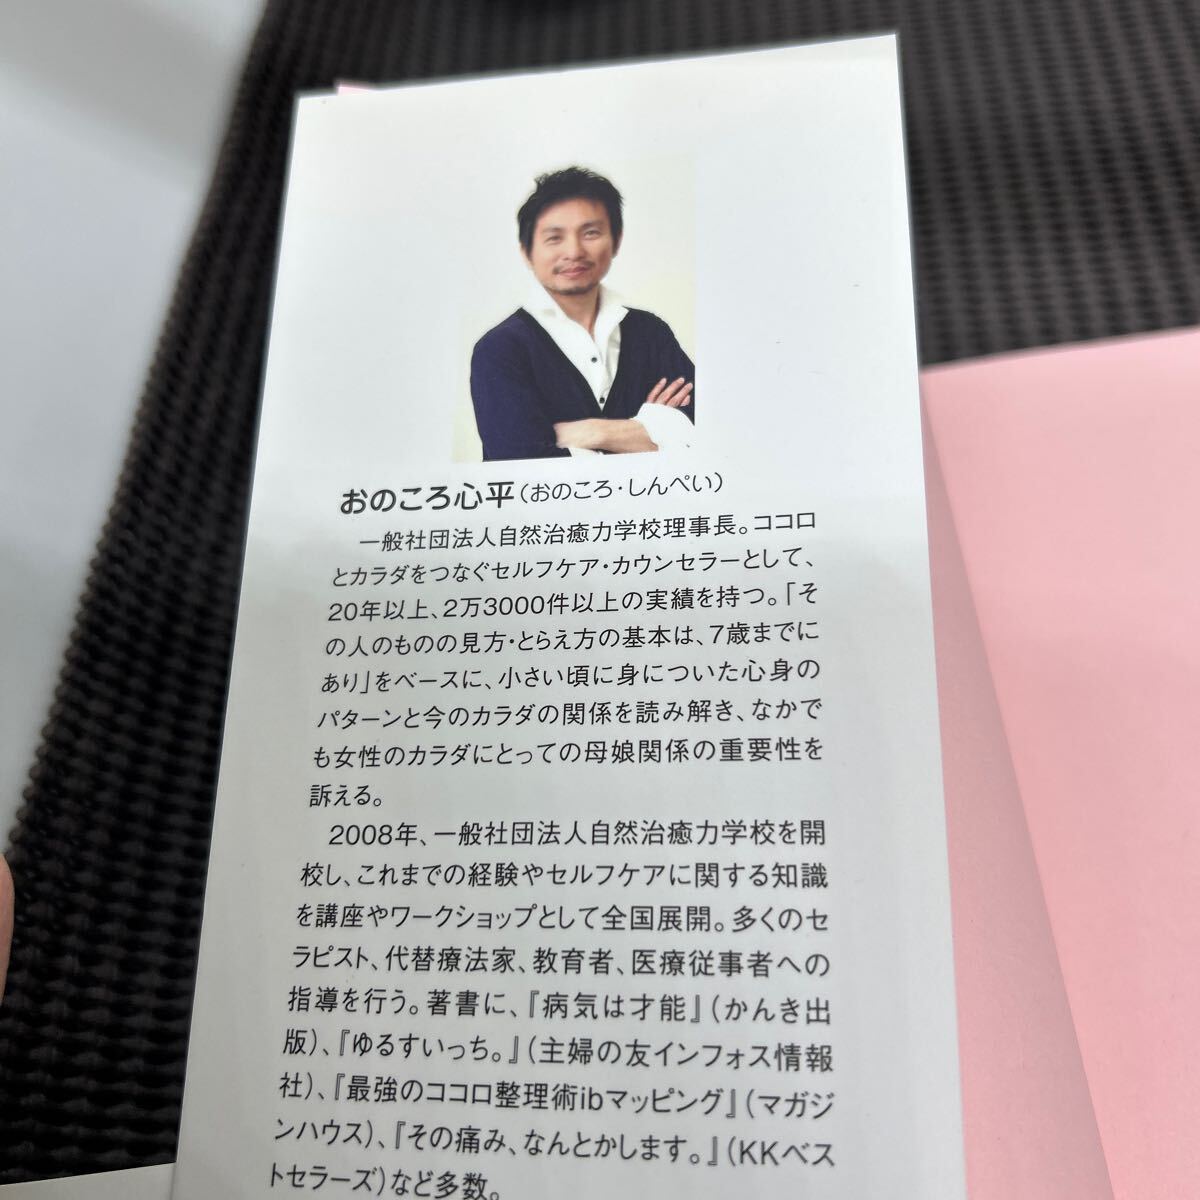 おのころ心平(おのころ・しんぺい)
一般社団法人自然治癒力学校理事長。ココロ
とカラダをつなぐセルフケア・カウンセラーとして、
20年以上、2万3000件以上の実績を持つ。「そ
の人のものの見方・とらえ方の基本は、7歳までに
あり」をベースに、小さい頃に身についた心身の
パターンと今のカラダの関係を読み解き、なかで
も女性のカラダにとっての母娘関係の重要性を
訴える。
2008年、一般社団法人自然治癒力学校を開
校し、これまでの経験やセルフケアに関する知識
を講座やワークショップとして全国展開。多くのセ
ラピスト、代替療法家、教育者、医療従事者への
指導を行う。著書に、『病気は才能』(かんき出
版)、『ゆるすいっち。』(主婦の友インフォス情報
社)、『最強のココロ整理術ibマッピング』(マガジ
ンハウス)、『その痛み、なんとかします。』(KKベス
トセラーズ)など多数。